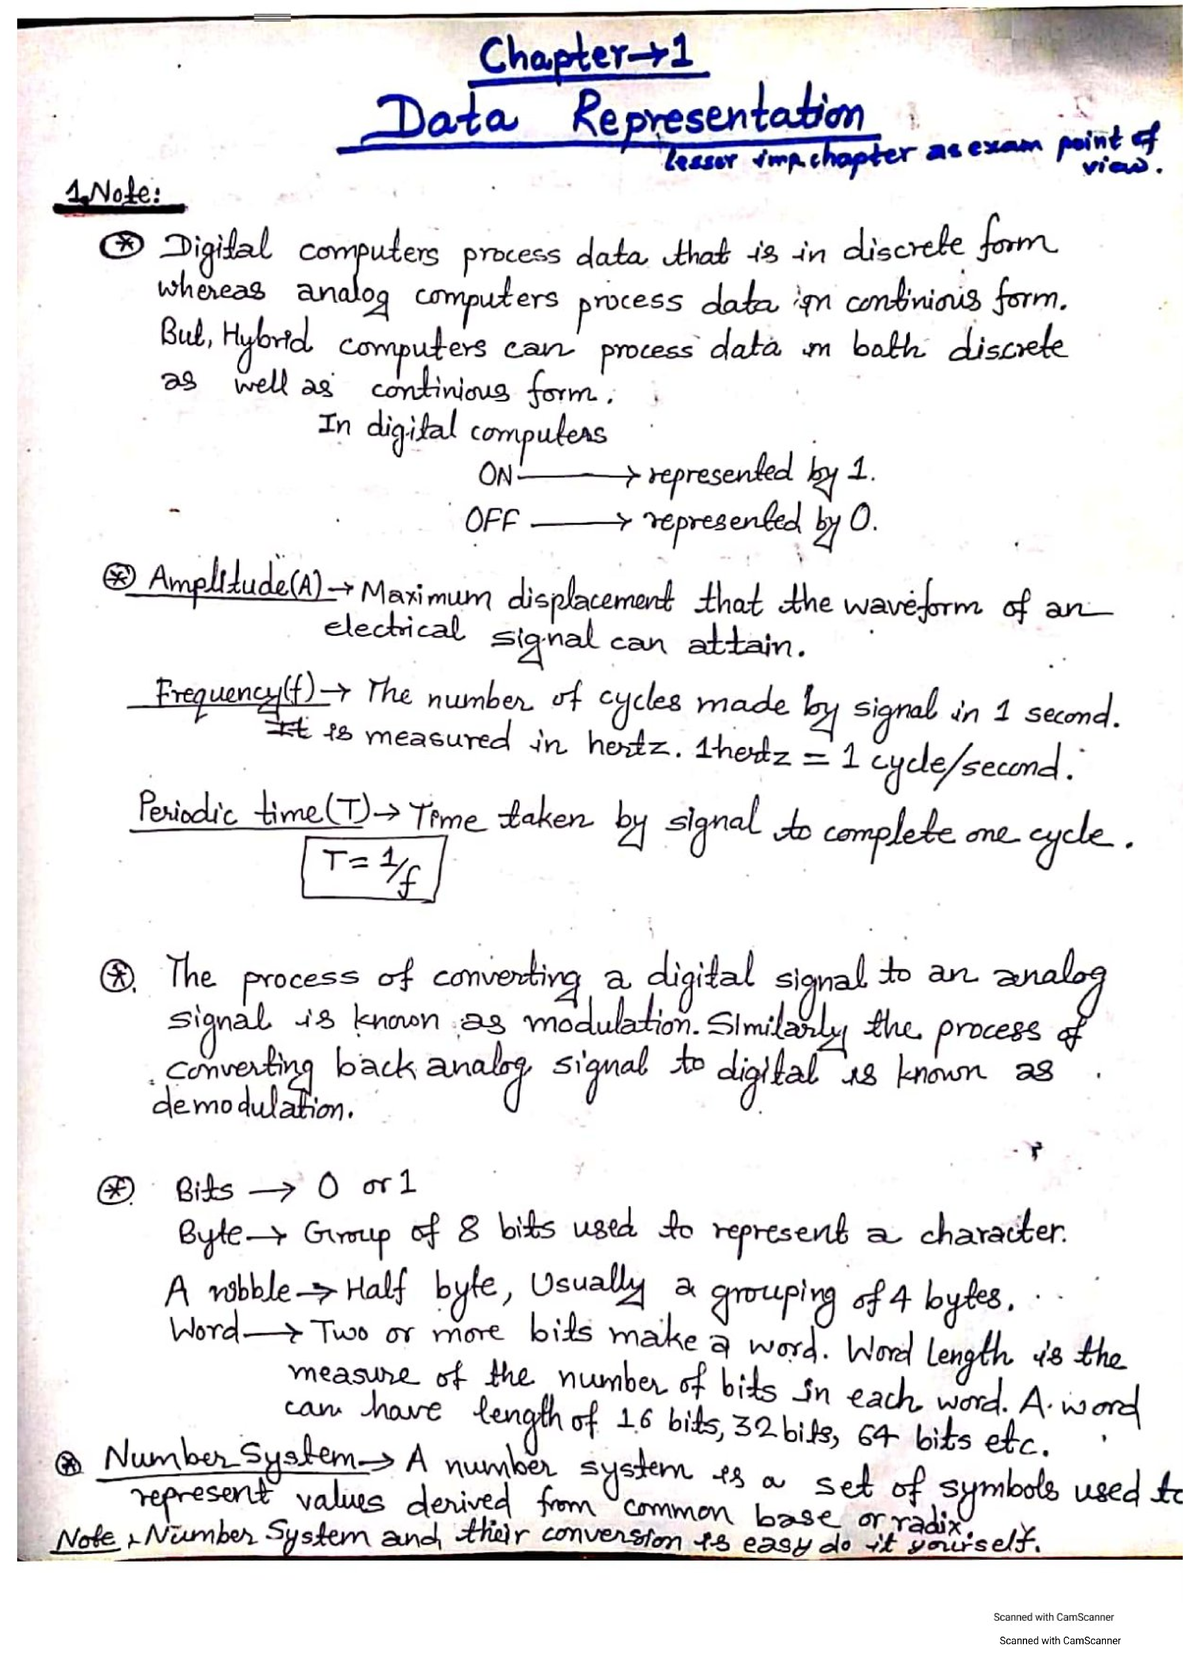 Chapter→1
Data Representation
lesser imp. chapter as exam point of
view.
1.Note:
* Digital computers process data that is in discrete form
whereas analog computers process data in continious form.
But, Hybrid computers can process data in both discrete
as well as continious form.
In digital computers
ON ⟶ represented by 1.
OFF ⟶ represented by 0.
* Amplitude(A)→ Maximum displacement that the waveform of an
electrical signal can attain.
Frequency(f)→ The number of cycles made by signal in 1 second.
It is measured in hertz. 1hertz = 1 cycle/second.
Periodic time(T)→ Time taken by signal to complete one cycle.
T= 1/f
*. The process of converting a digital signal to an analog
signal is known as modulation. Similarly the process of
converting back analog signal to digital is known as
demodulation.
*. Bits → 0 or 1
Byte→ Group of 8 bits used to represent a character.
A nibble→ Half byte, Usually a grouping of 4 bytes.
Word→ Two or more bits make a word. Word length is the
measure of the number of bits in each word. A word
can have length of 16 bits, 32 bits, 64 bits etc.
* Number System→ A number system is a set of symbols used to
represent values derived from common base or radix.
Note → Number System and their conversion is easy do it yourself.
Scanned with CamScanner
Scanned with CamScanner